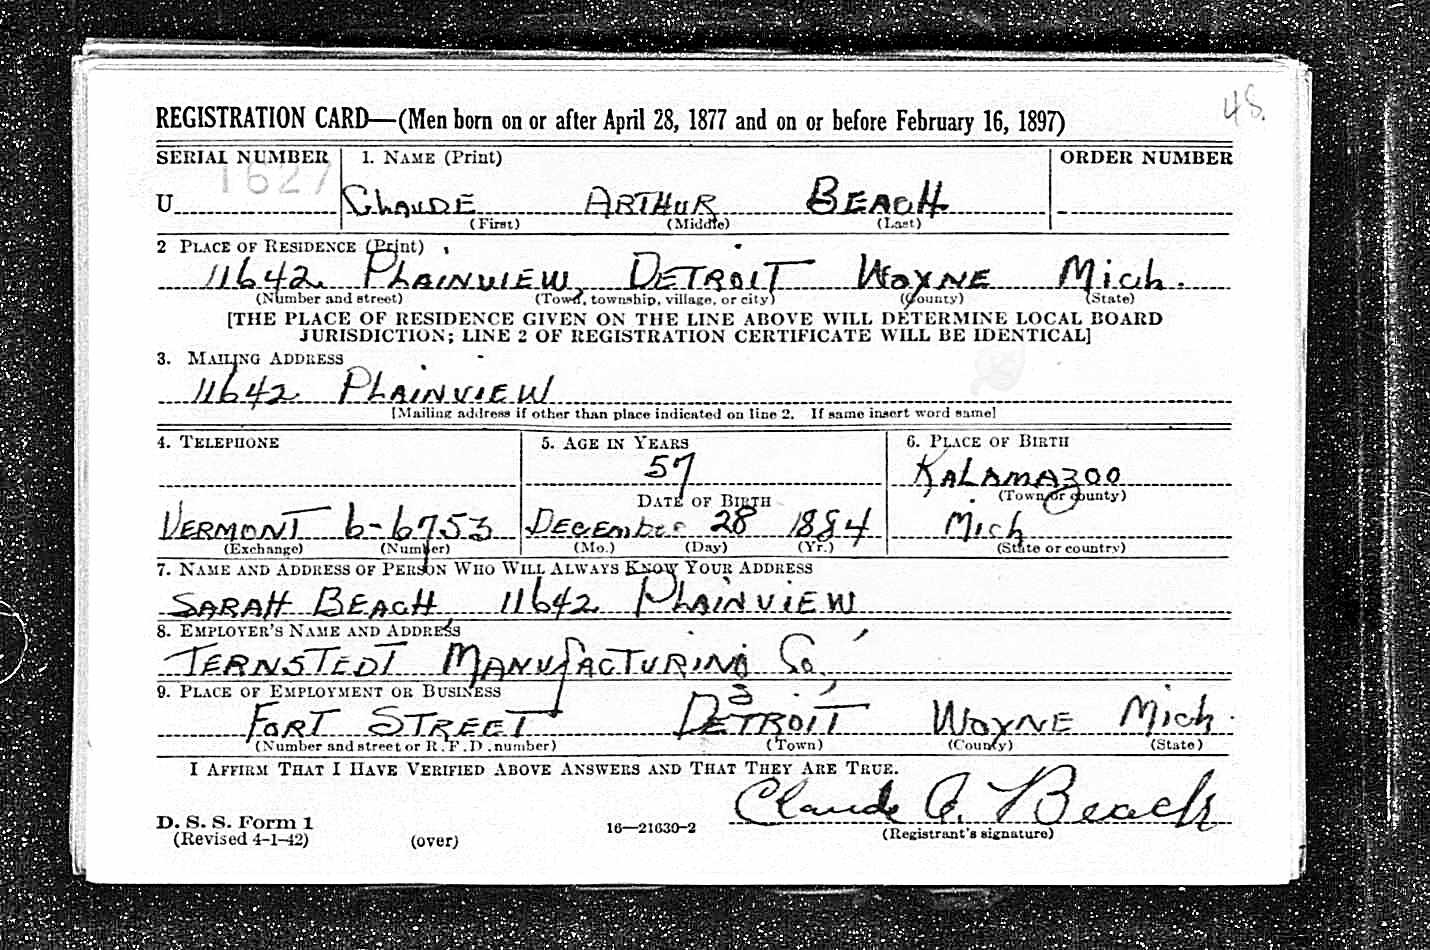 48.
REGISTRATION CARD—(Men born on or after April 28, 1877 and on or before February 16, 1897)
SERIAL NUMBER 1. NAME (Print) ORDER NUMBER
1627
U CLAUDE ARTHUR BEACH
(First) (Middle) (Last)
2 PLACE OF RESIDENCE (Print)
11642 PLAINVIEW, DETROIT WAYNE Mich.
(Number and street) (Town, township, village, or city) (County) (State)
[THE PLACE OF RESIDENCE GIVEN ON THE LINE ABOVE WILL DETERMINE LOCAL BOARD
JURISDICTION; LINE 2 OF REGISTRATION CERTIFICATE WILL BE IDENTICAL]
3. MAILING ADDRESS
11642 PLAINVIEW
[Mailing address if other than place indicated on line 2. If same insert word same]
4. TELEPHONE 5. AGE IN YEARS 6. PLACE OF BIRTH
57 KALAMAZOO
DATE OF BIRTH (Town or county)
VERMONT 6-6753 DECEMBER 28 1884 Mich
(Exchange) (Number) (Mo.) (Day) (Yr.) (State or country)
7. NAME AND ADDRESS OF PERSON WHO WILL ALWAYS KNOW YOUR ADDRESS
SARAH BEACH, 11642 PLAINVIEW
8. EMPLOYER'S NAME AND ADDRESS
TERNSTEDT MANUFACTURING Co.
9. PLACE OF EMPLOYMENT OR BUSINESS
FORT STREET DETROIT WAYNE Mich.
(Number and street or R. F. D. number) (Town) (County) (State)
I AFFIRM THAT I HAVE VERIFIED ABOVE ANSWERS AND THAT THEY ARE TRUE.
Claude A. Beach
D. S. S. Form 1
(Revised 4-1-42) (over) 16—21630-2 (Registrant's signature)